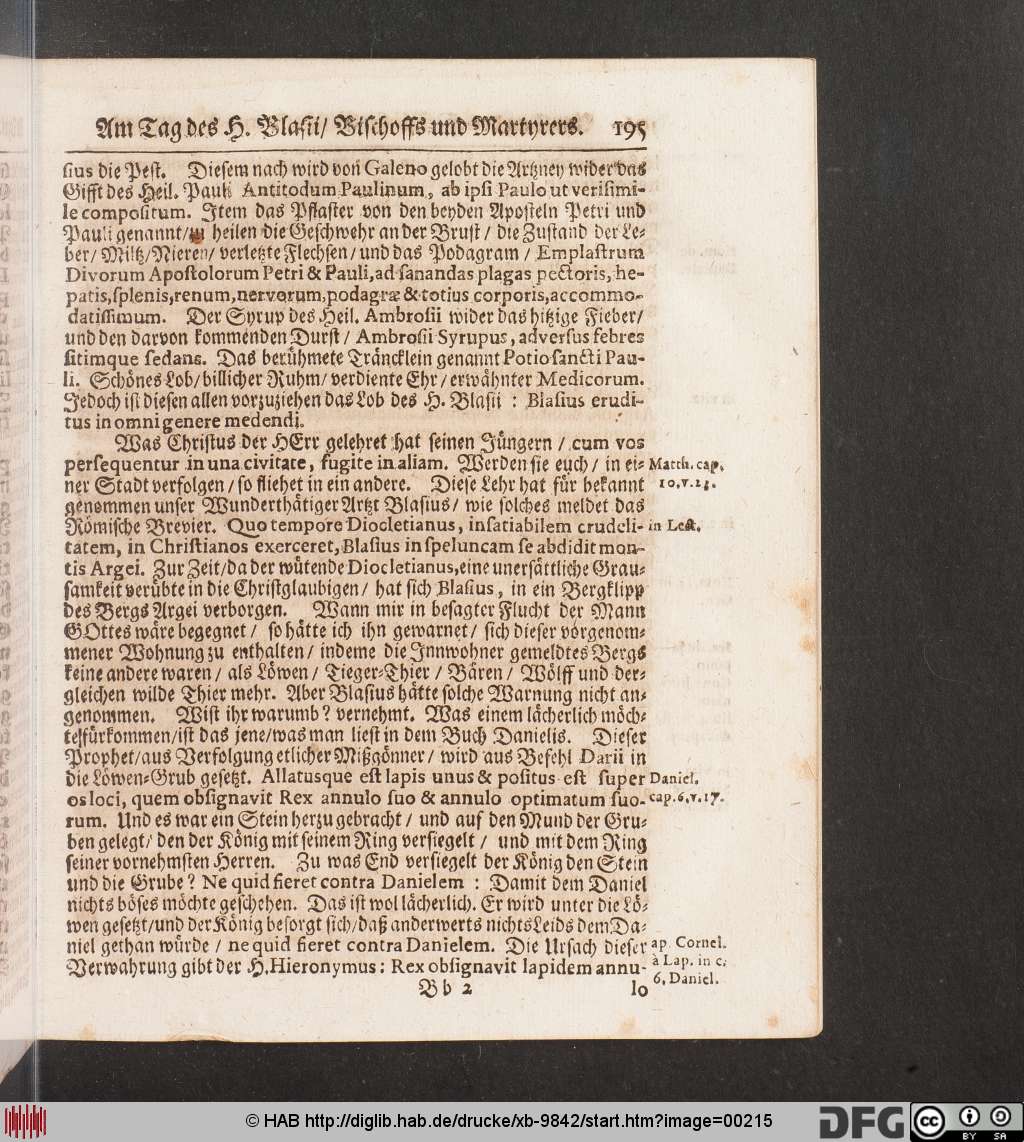 Am Tag des H. Blasii/ Bischoffs und Martyrers. 195
sius die Pest. Diesem nach wird von Galeno gelobt die Artzney wider das
Gifft des Heil. Pauli Antitodum Paulinum, ab ipsi Paulo ut verisimi-
le compositum. Item das Pflaster von den beyden Aposteln Petri und
Pauli genannt/ zu heilen die Geschwehr an der Brust / die Zustand der Le-
ber/ Miltz/Nieren/ verletzte Flechsen/ und das Podagram / Emplastrum
Divorum Apostolorum Petri & Pauli, ad sanandas plagas pectoris, he-
patis, splenis, renum, nervorum, podagræ & totius corporis, accommo-
datissimum. Der Syrup des Heil. Ambrosii wider das hitzige Fieber/
und den darvon kommenden Durst / Ambrosii Syrupus, adversus febres
sitimque sedans. Das berühmete Träncklein genannt Potio sancti Pau-
li. Schönes Lob/ billicher Ruhm/ verdiente Ehr/ erwähnter Medicorum.
Jedoch ist diesen allen vorzuziehen das Lob des H. Blasii : Blasius erudi-
tus in omni genere medendi.
Was Christus der HErr gelehret hat seinen Jüngern / cum vos
persequentur in una civitate, fugite in aliam. Werden sie euch / in ei- Matth. cap.
ner Stadt verfolgen / so fliehet in ein andere. Diese Lehr hat für bekannt 10. v. 23.
genommen unser Wunderthätiger Artzt Blasius/ wie solches meldet das
Römische Brevier. Quo tempore Diocletianus, insatiabilem crudeli- in Lect.
tatem, in Christianos exerceret, Blasius in speluncam se abdidit mon-
tis Argei. Zur Zeit/ da der wütende Diocletianus, eine unersättliche Grau-
samkeit verübte in die Christglaubigen / hat sich Blasius, in ein Bergklipp
des Bergs Argei verborgen. Wann mir in besagter Flucht der Mann
GOttes wäre begegnet / so hätte ich ihn gewarnet / sich dieser vorgenom-
mener Wohnung zu enthalten / indeme die Innwohner gemeldtes Bergs
keine andere waren / als Löwen / Tieger-Thier / Bären / Wölff und der-
gleichen wilde Thier mehr. Aber Blasius hätte solche Warnung nicht an-
genommen. Wist ihr warumb? vernehmt. Was einem lächerlich möch-
te fürkommen/ist das jene/was man liest in dem Buch Danielis. Dieser
Prophet/aus Verfolgung etlicher Mißgönner / wird aus Befehl Darii in
die Löwen-Grub gesetzt. Allatusque est lapis unus & positus est super Daniel.
os loci, quem obsignavit Rex annulo suo & annulo optimatum suo- cap. 6. v. 17.
rum. Und es war ein Stein herzu gebracht / und auf den Mund der Gru-
ben gelegt/ den der König mit seinem Ring versiegelt / und mit dem Ring
seiner vornehmsten Herren. Zu was End versiegelt der König den Stein
und die Grube? Ne quid fieret contra Danielem : Damit dem Daniel
nichts böses möchte geschehen. Das ist wol lächerlich. Er wird unter die Lö-
wen gesetzt/und der König besorgt sich/ daß anderwerts nichts Leids dem Da-
niel gethan würde / ne quid fieret contra Danielem. Die Ursach dieser ap. Cornel.
Verwahrung gibt der H. Hieronymus : Rex obsignavit lapidem annu- à Lap. in c.
6. Daniel.
Bb 2 lo
© HAB http://diglib.hab.de/drucke/xb-9842/start.htm?image=00215
DFG
cc
BY SA